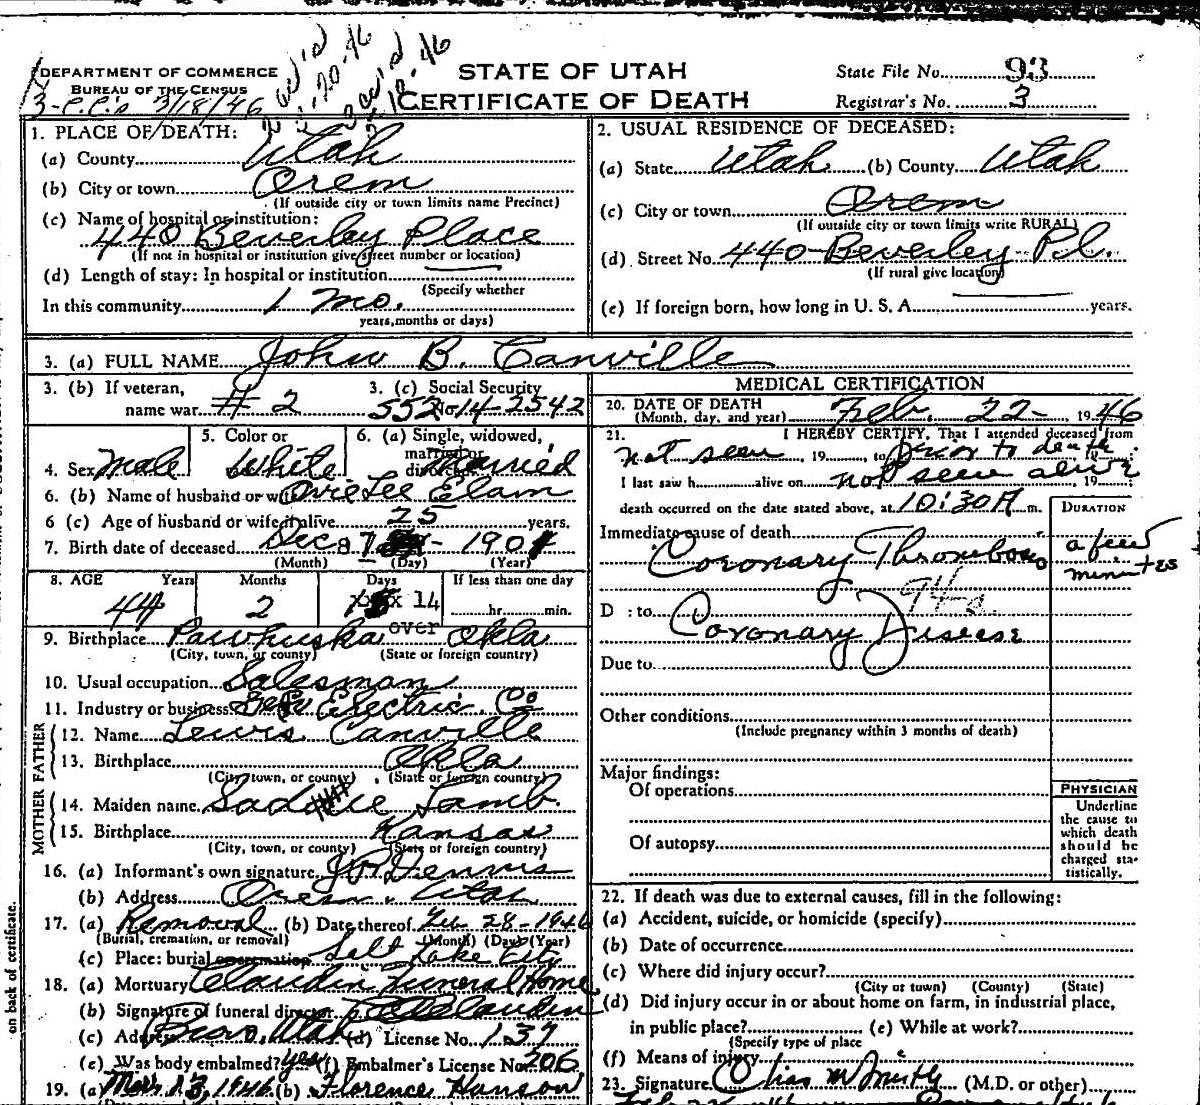 DEPARTMENT OF COMMERCE
BUREAU OF THE CENSUS
3-C.C.'s 3/18/46
STATE OF UTAH
CERTIFICATE OF DEATH
State File No. 93
Registrar's No. 3
1. PLACE OF DEATH:
(a) County Utah
(b) City or town Orem
(If outside city or town limits name Precinct)
(c) Name of hospital or institution:
440 Beverley Place
(If not in hospital or institution give street number or location)
(d) Length of stay: In hospital or institution
(Specify whether
In this community 1 Mo.
years, months or days)
2. USUAL RESIDENCE OF DECEASED:
(a) State Utah (b) County Utah
(c) City or town Orem
(If outside city or town limits write RURAL)
(d) Street No. 440 Beverley Pl.
(If rural give location)
(e) If foreign born, how long in U. S. A. years.
3. (a) FULL NAME John B. Canville
3. (b) If veteran,
name war # 2
3. (c) Social Security
No. 552 14-2542
4. Sex Male
5. Color or
White
6. (a) Single, widowed,
married or
Married
6. (b) Name of husband or wife Ovie Lee Elam
6 (c) Age of husband or wife if alive 25 years.
7. Birth date of deceased Dec 8 1901
(Month) (Day) (Year)
8. AGE Years Months Days If less than one day
44 2 14 hr. min.
over
9. Birthplace Pawhuska Okla
(City, town, or county) (State or foreign country)
10. Usual occupation Salesman
11. Industry or business Electric Co
FATHER
12. Name Lewis Canville
13. Birthplace Okla
(City, town, or county) (State or foreign country)
MOTHER
14. Maiden name Sadie Lamb
15. Birthplace Kansas
(City, town, or county) (State or foreign country)
16. (a) Informant's own signature Dennis
(b) Address Orem, Utah
17. (a) Removal (b) Date thereof Feb 28-1946
(Burial, cremation, or removal) (Month) (Day) (Year)
(c) Place: burial or cremation Salt Lake City
18. (a) Mortuary Claudin Funeral Home
(b) Signature of funeral director Claudin
(c) Address Provo, Utah (d) License No. 137
(e) Was body embalmed? yes (f) Embalmer's License No. 206
19. (a) Mar. 13, 1946 (b) Florence Hanson
on back of certificate.
MEDICAL CERTIFICATION
20. DATE OF DEATH
(Month, day, and year) Feb. 22- 1946
21. I HEREBY CERTIFY, That I attended deceased from
not seen, 19, to prior to death
I last saw h alive on not seen alive 19
death occurred on the date stated above, at 10:30 A m.
DURATION
Immediate cause of death
Coronary Thrombosis a few minutes
94a
D : to Coronary Disease
Due to
Other conditions
(Include pregnancy within 3 months of death)
Major findings:
Of operations
Of autopsy
PHYSICIAN
Underline
the cause to
which death
should be
charged sta-
tistically.
22. If death was due to external causes, fill in the following:
(a) Accident, suicide, or homicide (specify)
(b) Date of occurrence
(c) Where did injury occur?
(City or town) (County) (State)
(d) Did injury occur in or about home on farm, in industrial place,
in public place? (e) While at work?
(Specify type of place
(f) Means of injury
23. Signature (M.D. or other)